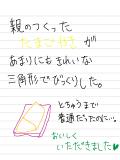 親のつくった
たまごやきが
あまりにもきれいな
三角形でびっくりした。
とちゅうまで
普通だったのに…。
おいしく
いただきました♥